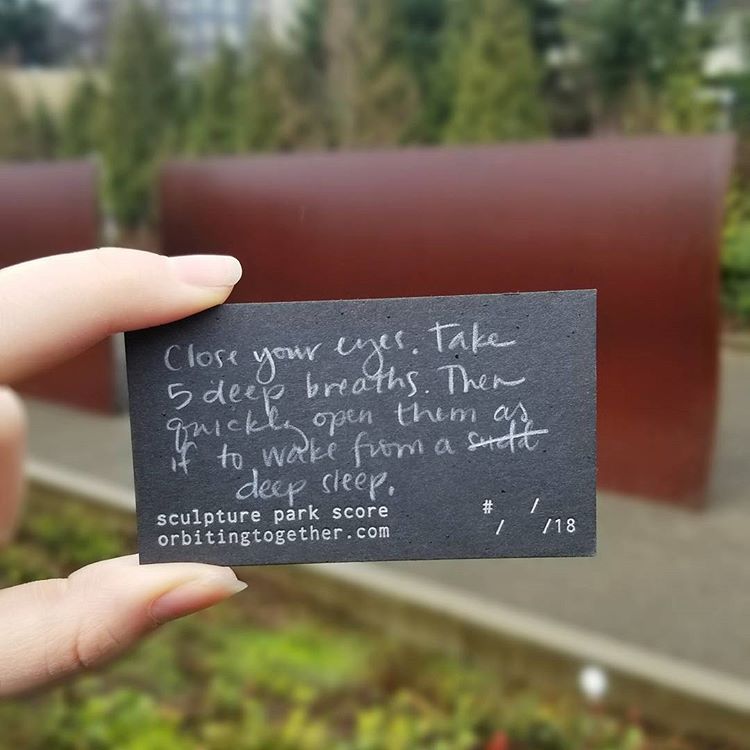 Close your eyes. Take
5 deep breaths. Then
quickly open them as
if to wake from a
deep sleep.
sculpture park score # /
orbitingtogether.com / /18